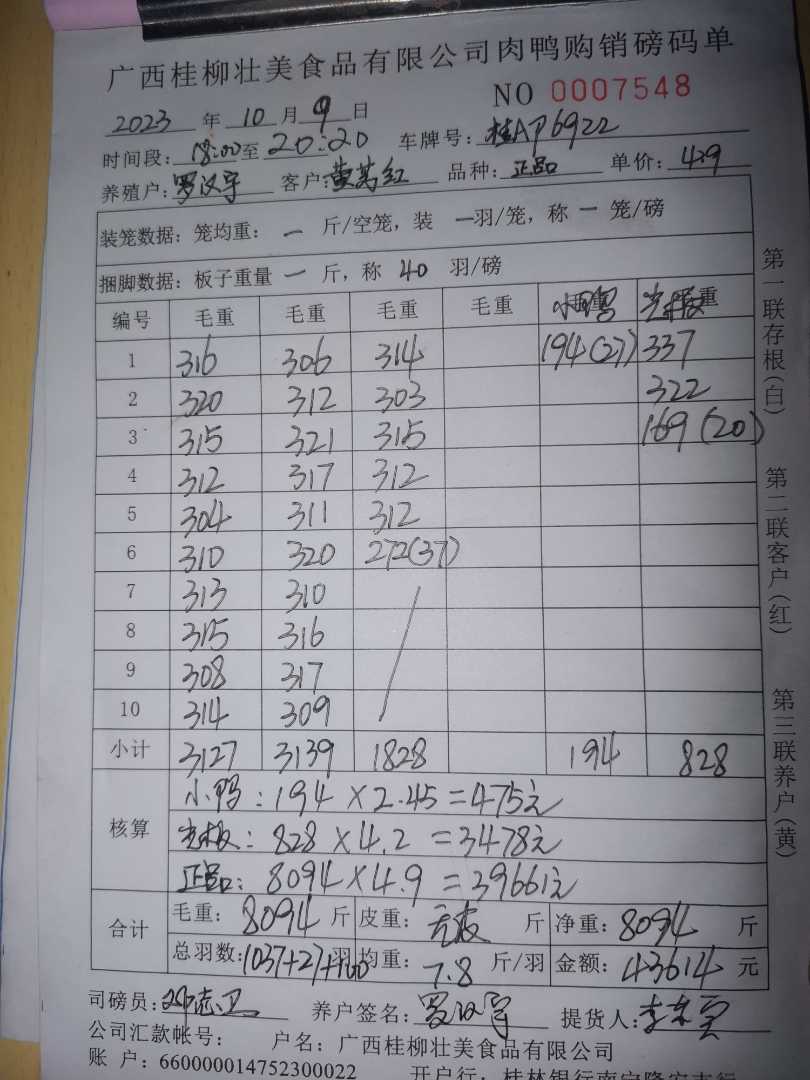 广西桂柳壮美食品有限公司肉鸭购销磅码单
NO 0007548
2023 年 10 月 9 日
时间段: 18:00 至 20:20 车牌号: 桂AP6922
养殖户: 罗汉宇 客户: 黄万红 品种: 正品 单价: 4.9
装笼数据: 笼均重: 一 斤/空笼, 装 一羽/笼, 称 一 笼/磅
捆脚数据: 板子重量 一 斤, 称 40 羽/磅
编号 毛重 毛重 毛重 毛重 小鸭 光板
1 316 306 314 194(27) 337
2 320 312 303 322
3 315 321 315 169(20)
4 312 317 312
5 304 311 312
6 310 320 272(37)
7 313 310
8 315 316
9 308 317
10 314 309
小计 3127 3139 1828 194 828
核算
小鸭: 194 × 2.45 = 475元
光板: 828 × 4.2 = 3478元
正品: 8094 × 4.9 = 39661元
合计
毛重: 8094 斤 皮重: 无皮 斤 净重: 8094 斤
总羽数: 1037+27+100 羽 均重: 7.8 斤/羽 金额: 43614 元
司磅员: 养户签名: 罗汉宇 提货人:
公司汇款帐号: 户名: 广西桂柳壮美食品有限公司
账 户: 660000014752300022 开户行: 桂林银行南宁隆安支行
第一联存根(白)
第二联客户(红)
第三联养户(黄)